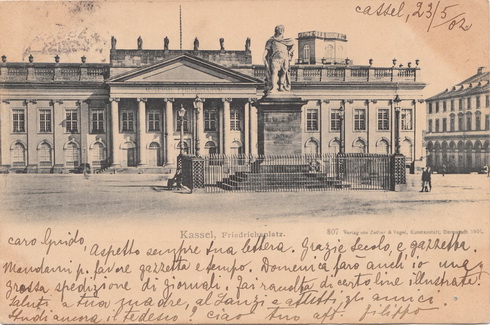 Cassel, 23/5/02
Kassel, Friedrichsplatz.
807 Verlag von Zedler & Vogel, Kunstanstalt, Darmstadt, 1901.
caro Guido,
Aspetto sempre tua lettera. Grazie Secolo, e gazzetta.
Mandami p. favore gazzetta e tempo. Domenica farò anch'io una
grossa spedizione di giornali. fai raccolta di cartoline illustrate?
Saluti a tua madre, al Lanzi e a tutti gli amici.
Studi ancora il tedesco? ciao tuo aff. filippo